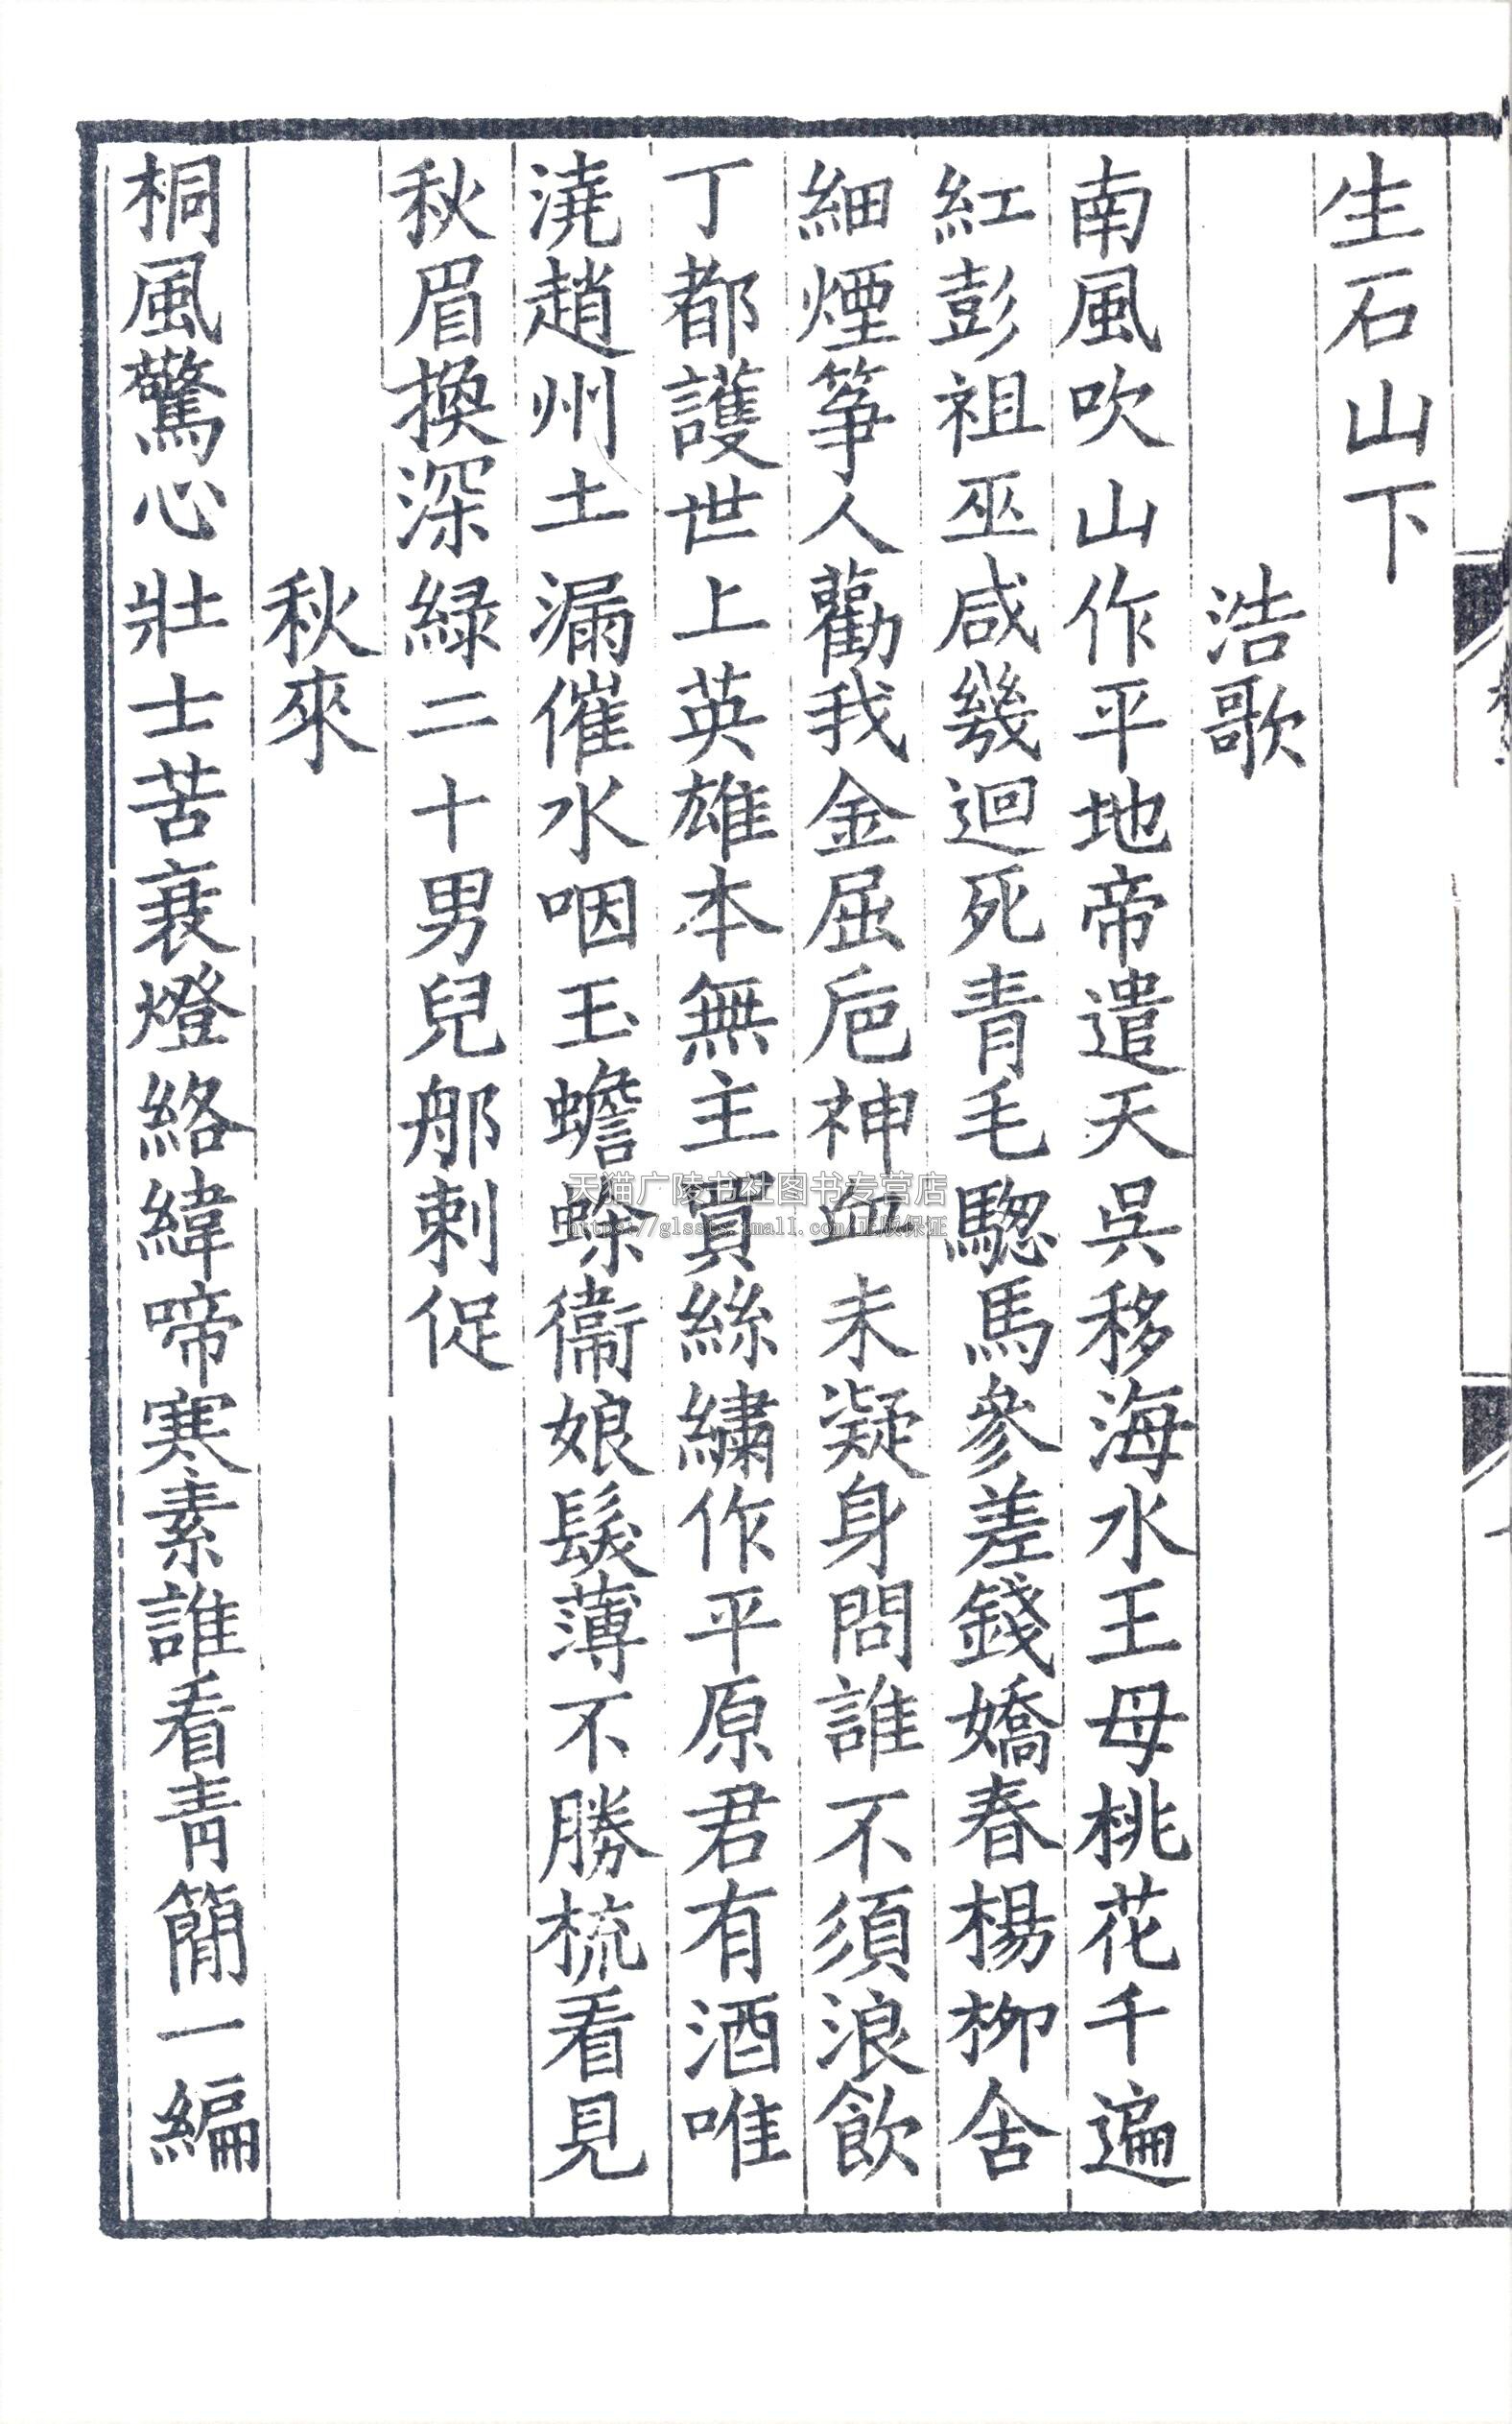 生石山下
浩歌
南風吹山作平地帝遣天吳移海水王母桃花千遍
紅彭祖巫咸幾迴死青毛驄馬參差錢嬌春楊柳含
細煙箏人勸我金屈巵神血未凝身問誰不須浪飲
丁都護世上英雄本無主買絲繡作平原君有酒唯
澆趙州土漏催水咽玉蟾蜍衞娘鬓薄不勝梳看見
秋眉換深緑二十男兒那剌促
秋來
桐風驚心壯士苦衰燈絡緯啼寒素誰看靑簡一編
天猫广陵书社图书专营店
https://glssts.tmall.com/正版保证